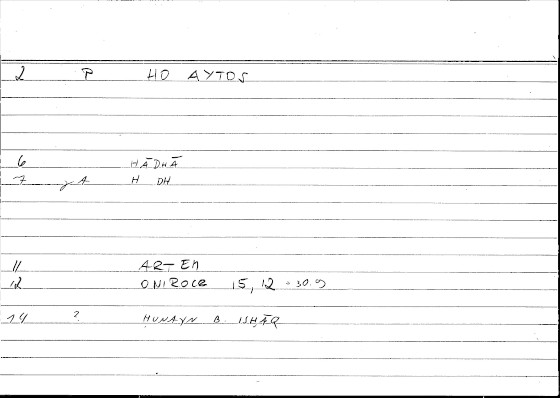 2 P HO AYTOS
6 HĀDHĀ
7 yA H DH
11 ARTEM
12 ONIROCR 15, 12 - 30.9
14 ? ḤUNAYN B. ISḤĀQ